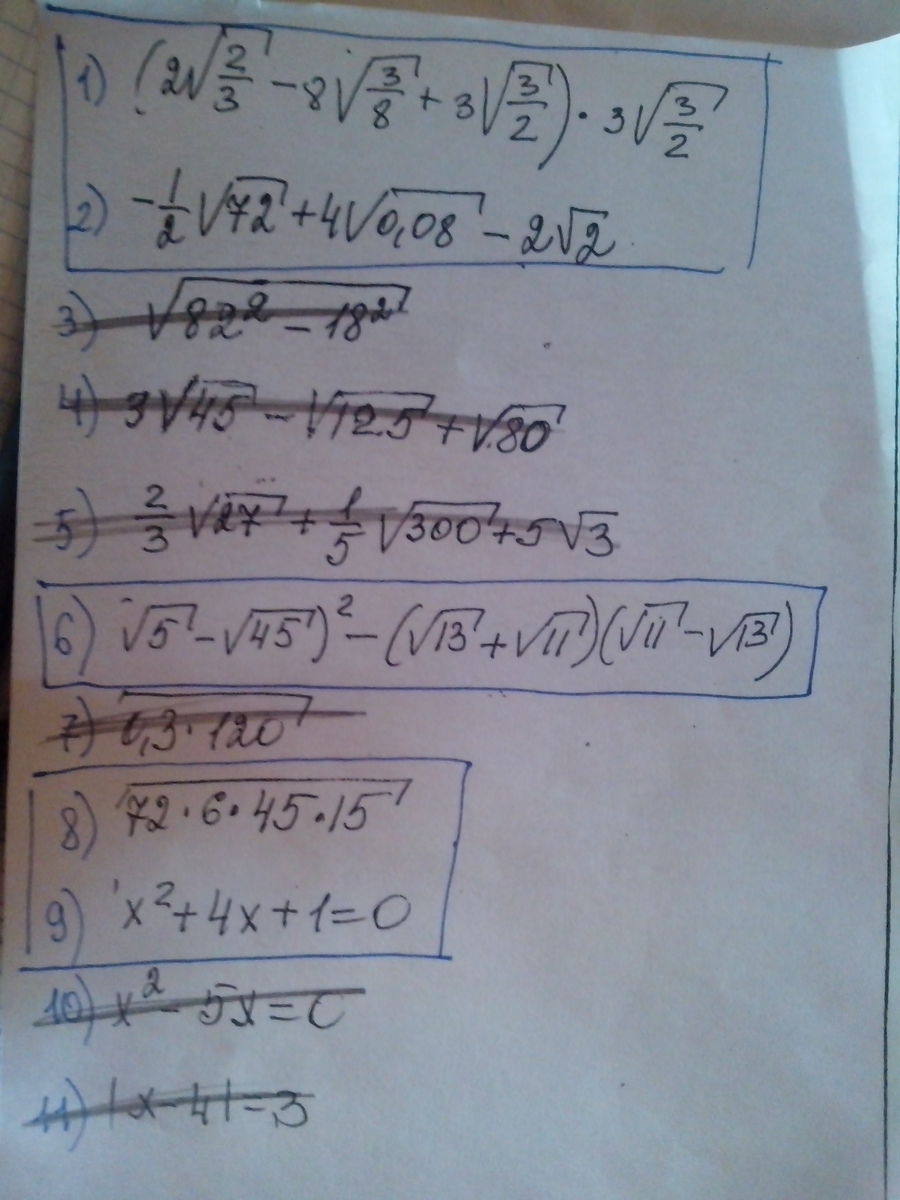 1) (2√(2/3) - 8√(3/8) + 3√(3/2)) · 3√(3/2)
2) -1/2√72 + 4√0,08 - 2√2
3) √(82² - 18²)
4) 3√45 - √125 + √80
5) 2/3√27 + 1/5√300 + 5√3
6) √5 - √45)² - (√13 + √11)(√11 - √13)
7) √0,3·120
8) √72·6·45·15
9) x² + 4x + 1 = 0
10) x² - 5x = 0
11) |x - 4| = 3